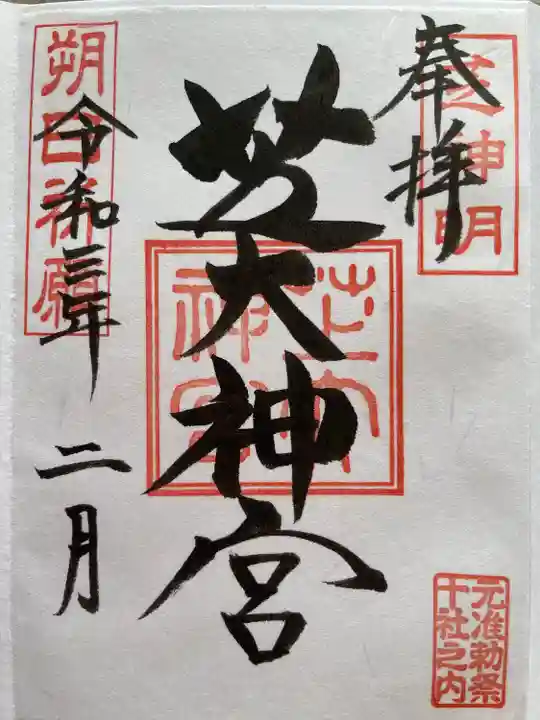 奉拝
芝神明
芝大神宮
芝大
神宮
令和三年 二月
朔日祈願
元准勅祭
十社之内